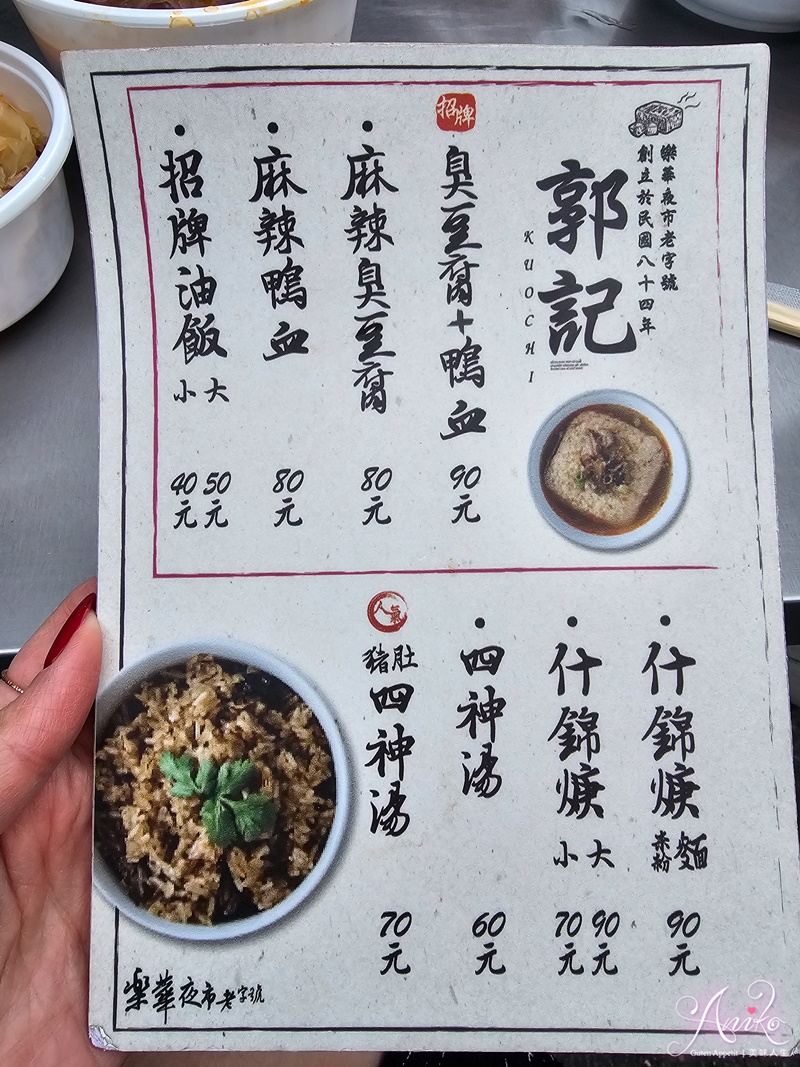 樂華夜市老字號
創立於民國八十四年
郭記
KUO CHI
招牌
臭豆腐+鴨血 90元
• 麻辣臭豆腐 80元
• 麻辣鴨血 80元
• 招牌油飯 大 50元 小 40元
• 什錦焿 麵 米粉 90元
• 什錦焿 大 90元 小 70元
• 四神湯 60元
人氣
豬肚四神湯 70元
樂華夜市老字號
Aniko
Guten Appetit | 美味人生